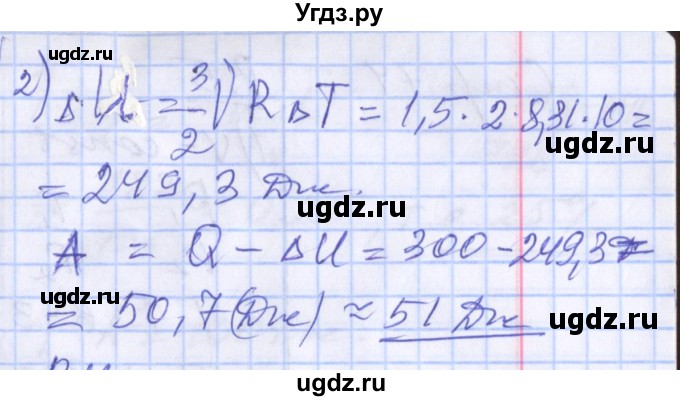 Угдз.ру
ugdz.ru ugdz.ru
2) ΔU = 3/2 νRΔT = 1,5 · 2 · 8,31 · 10 =
ugdz.ru
= 249,3 Дж.
ugdz.ru
A = Q - ΔU = 300 - 249,3 =
ugdz.ru
= 50,7 (Дж) ≈ 51 Дж
ugdz.ru
ugdz.ru